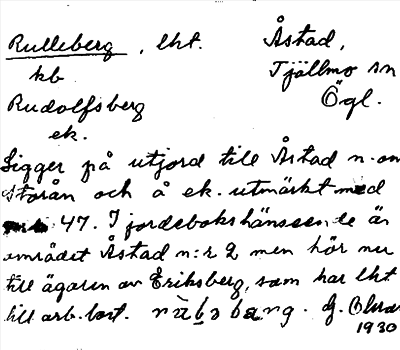 Rulleberg, lht. Åstad,
kb Tjällmo sn
Rudolfsberg Ögl.
ek.
Ligger på utjord till Åstad n. om
storån och å ek. utmärkt med
47. I jordebokshänseende är
området Åstad n:r 2 men hör nu
till ägaren av Eriksberg, som har lht
till arb. bost. G.
1930